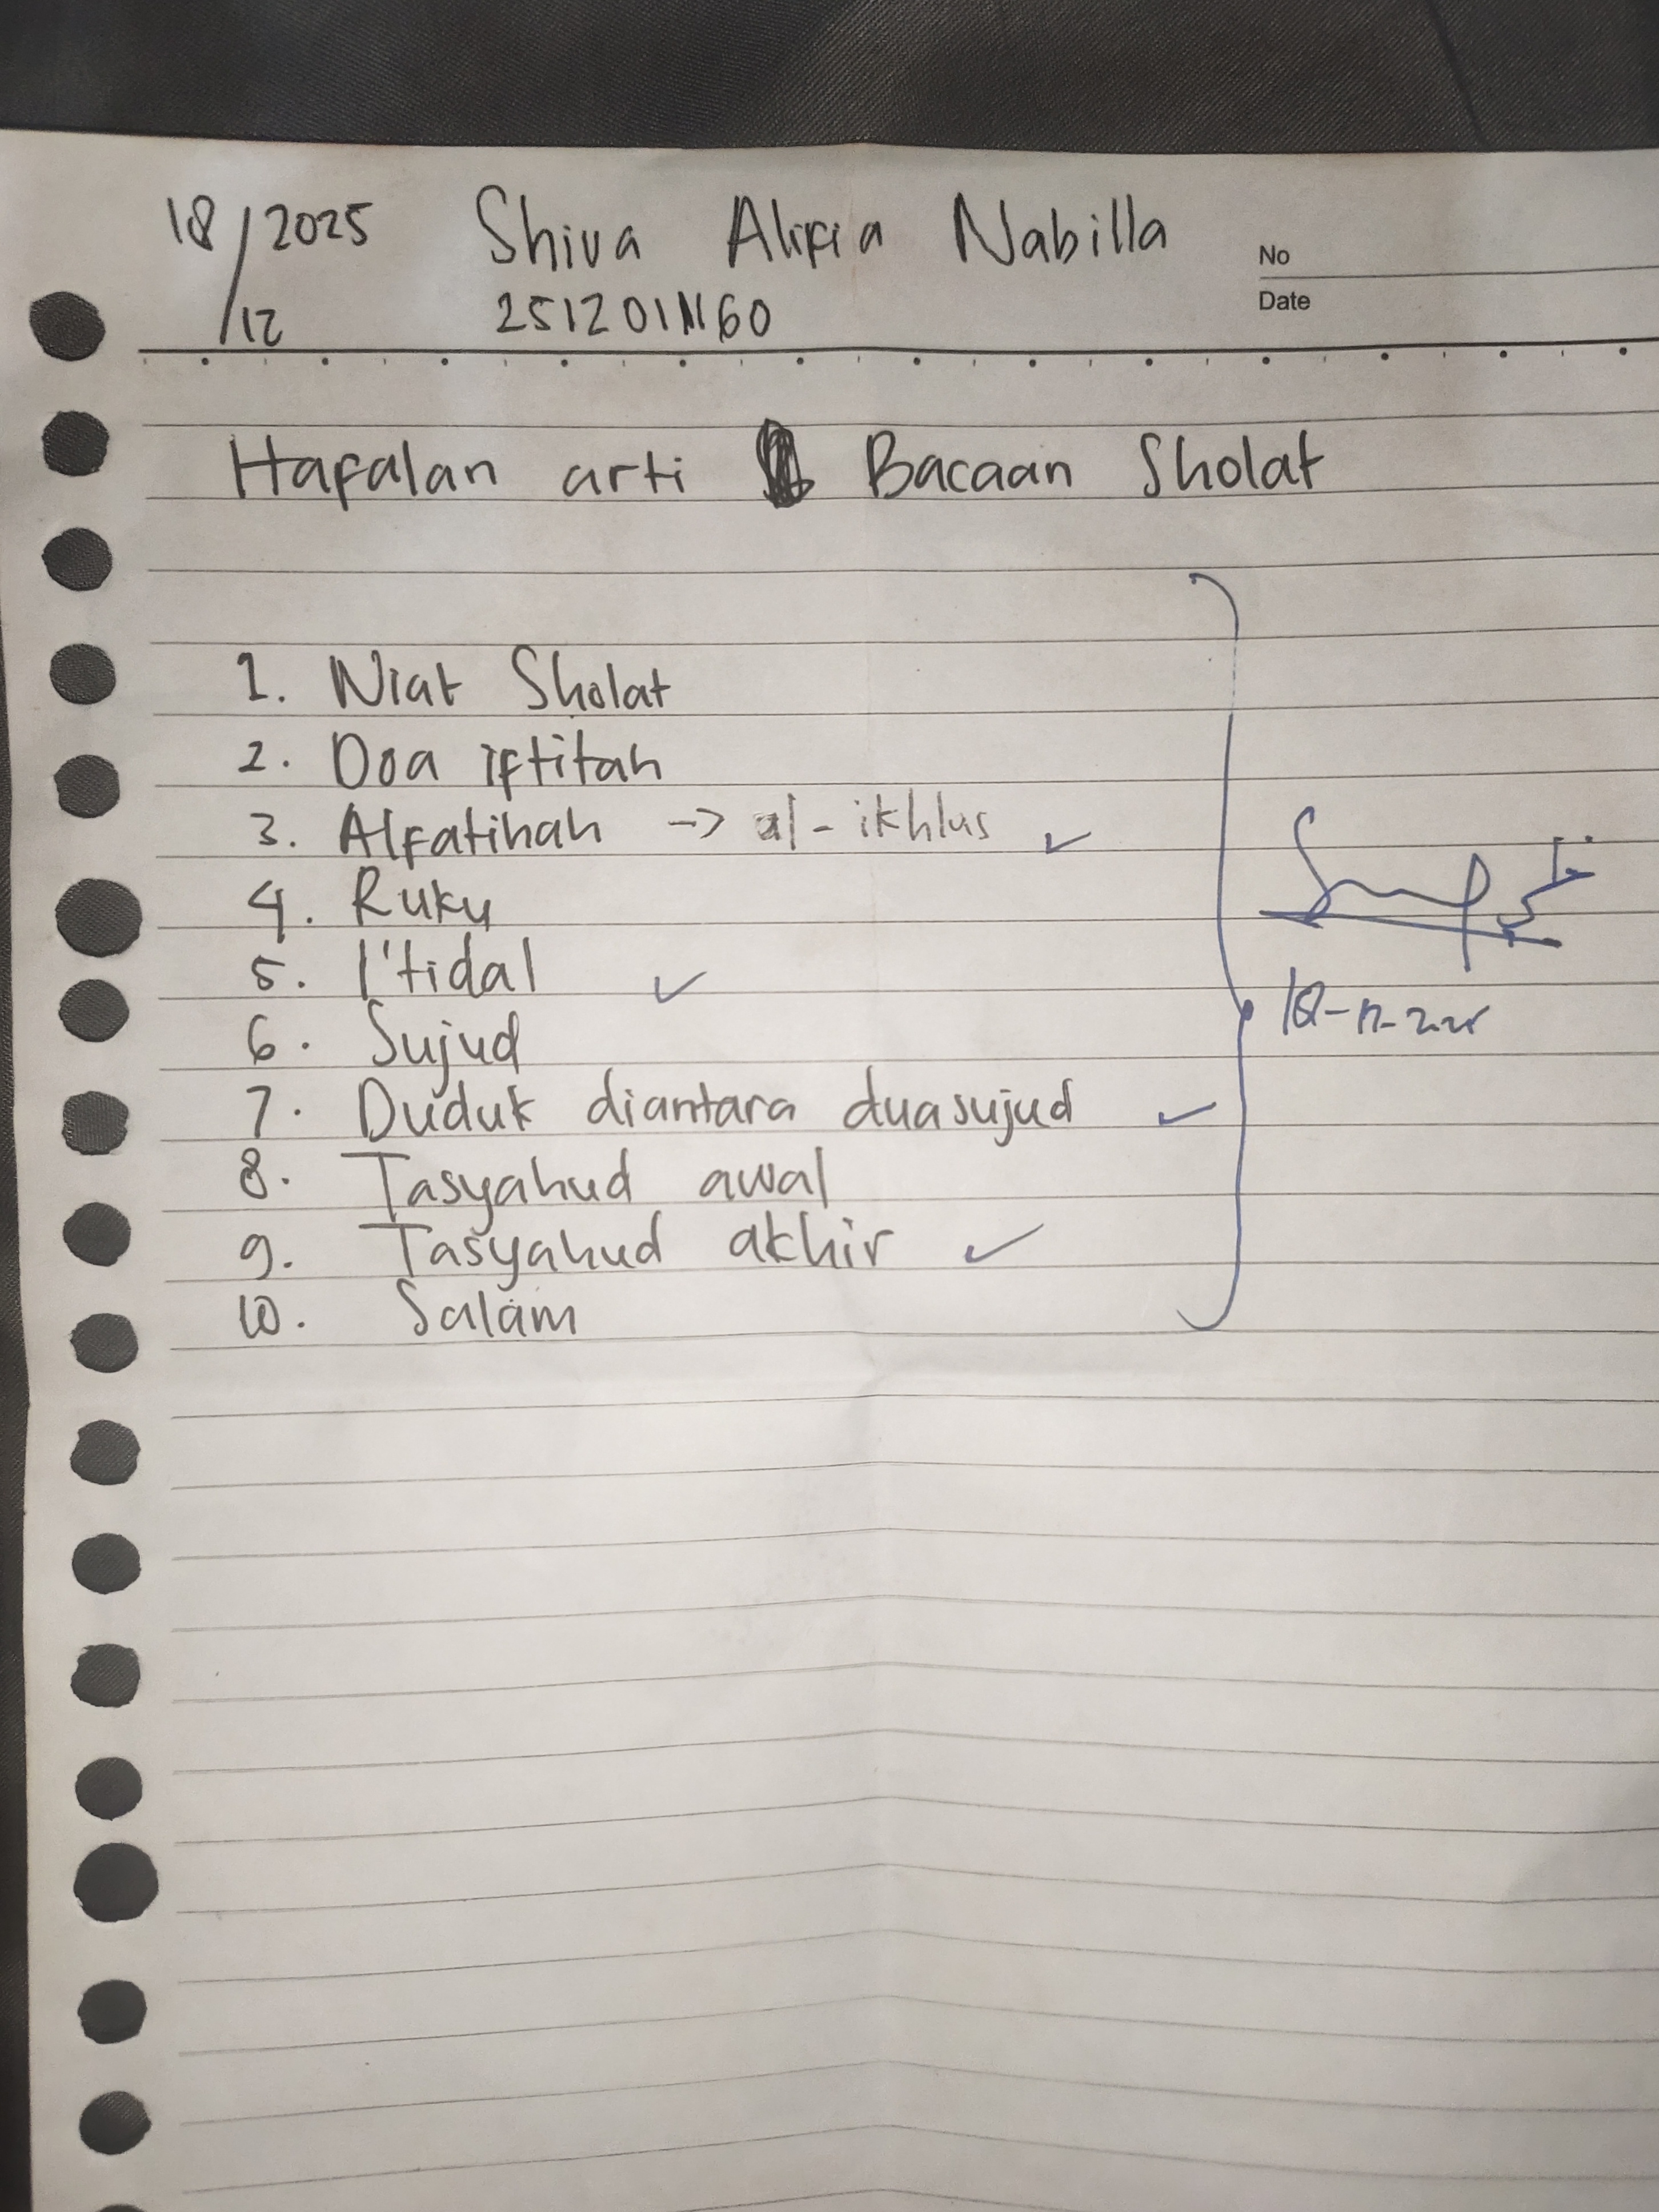 18/12 2025 Shiva Alifia Nabilla
No
Date
Hafalan arti Bacaan Sholat
1. Niat Sholat
2. Doa iftitah
3. Alfatihah -> al-ikhlas ✓
4. Ruku
5. I'tidal ✓
6. Sujud
7. Duduk diantara duasujud ✓
8. Tasyahud awal
9. Tasyahud akhir ✓
10. Salam